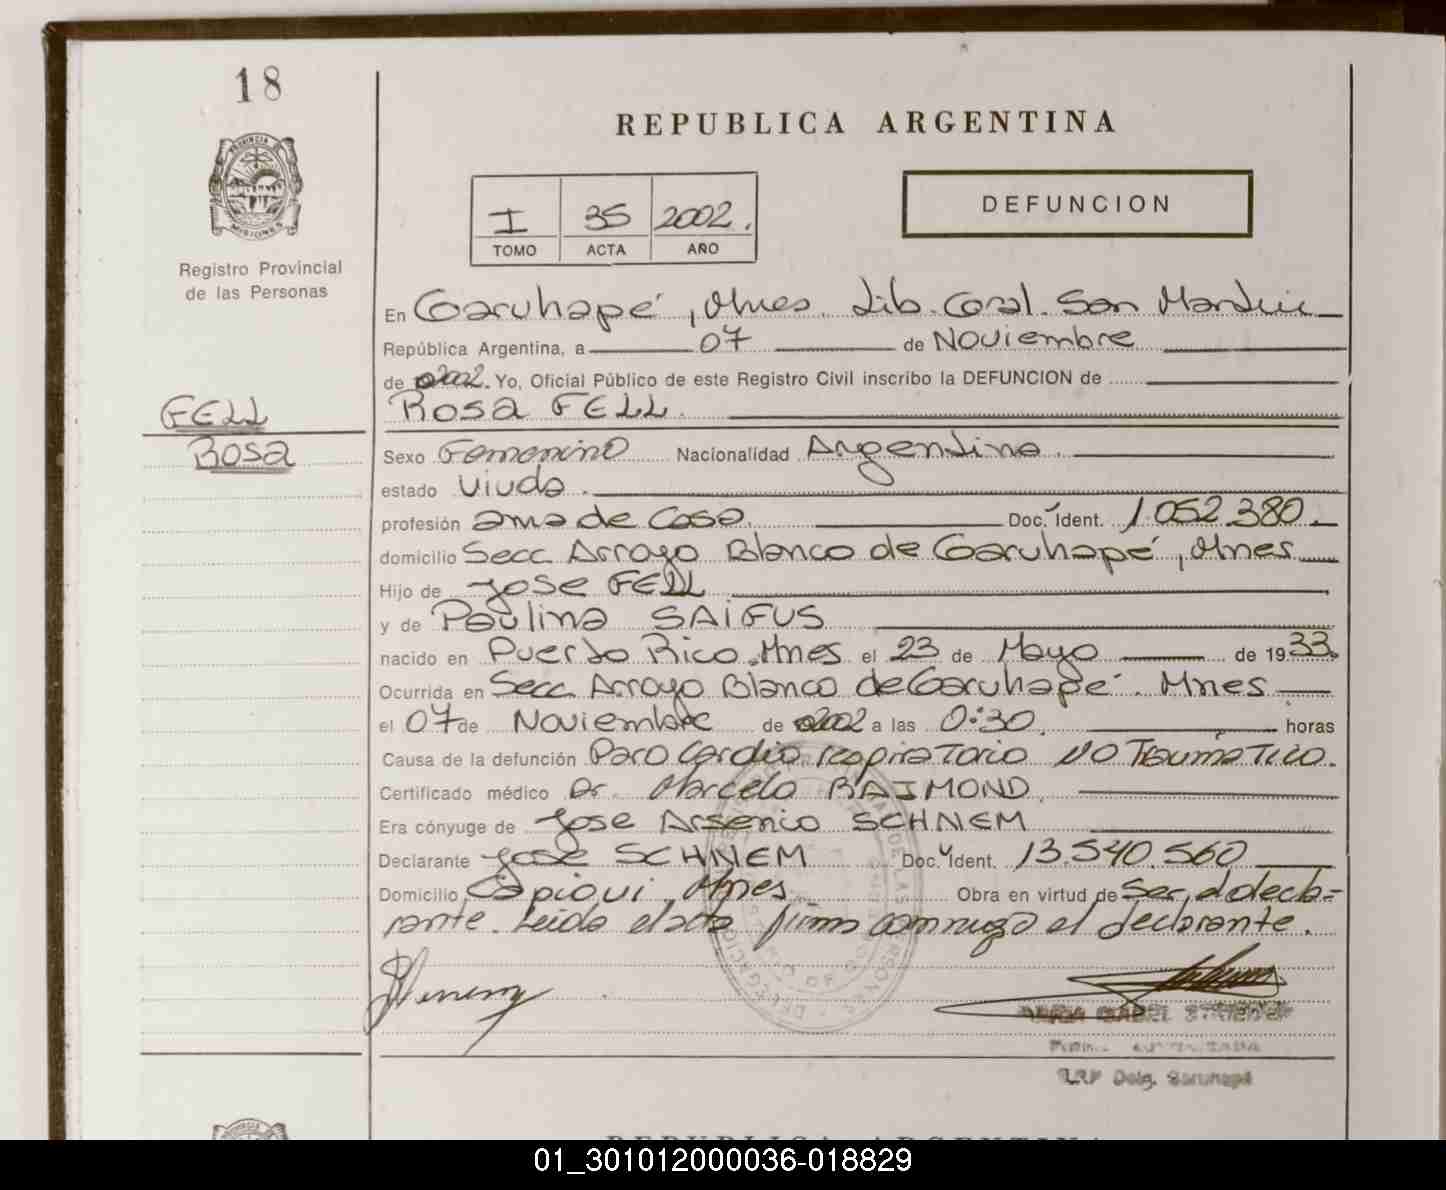 18
REPUBLICA ARGENTINA
PROVINCIA DE
MISIONES
Registro Provincial
de las Personas
I 35 2002.
TOMO ACTA AÑO
DEFUNCION
En Garuhapé, Mnes. Lib. Gral. San Martín
República Argentina, a 07 de Noviembre
de 2002. Yo, Oficial Público de este Registro Civil inscribo la DEFUNCION de
Rosa FELL.
FELL
Rosa
Sexo Femenino Nacionalidad Argentina.
estado Viuda.
profesión ama de Casa Doc. Ident. 1.052.380
domicilio Secc. Arroyo Blanco de Garuhapé, Mnes
Hijo de Jose FELL
y de Paulina SAIFUS
nacido en Puerto Rico, Mnes el 23 de Mayo de 1933.
Ocurrida en Secc. Arroyo Blanco de Garuhapé. Mnes
el 07 de Noviembre de 2002 a las 0:30. horas
Causa de la defunción Paro Cardio respiratorio NO Traumatico.
Certificado médico Dr. Marcelo RAIMOND.
Era cónyuge de Jose Arsenio SCHNEM
Declarante Jose SCHNEM Doc. Ident. 13.540.560
Domicilio Capioui, Mnes Obra en virtud de Ser el decla=
rante. Leida el acta firma conmigo el declarante.
Delg. Garuhapé
REPUBLICA ARGENTINA
01_301012000036-018829